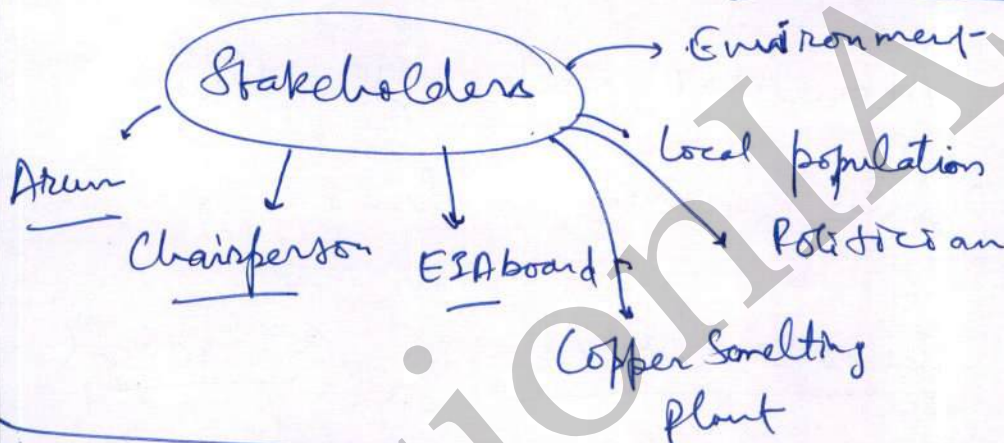 Stakeholders
Environment
Local population
Politician
Arun
Chairperson
EIA board
Copper Smelting
plant